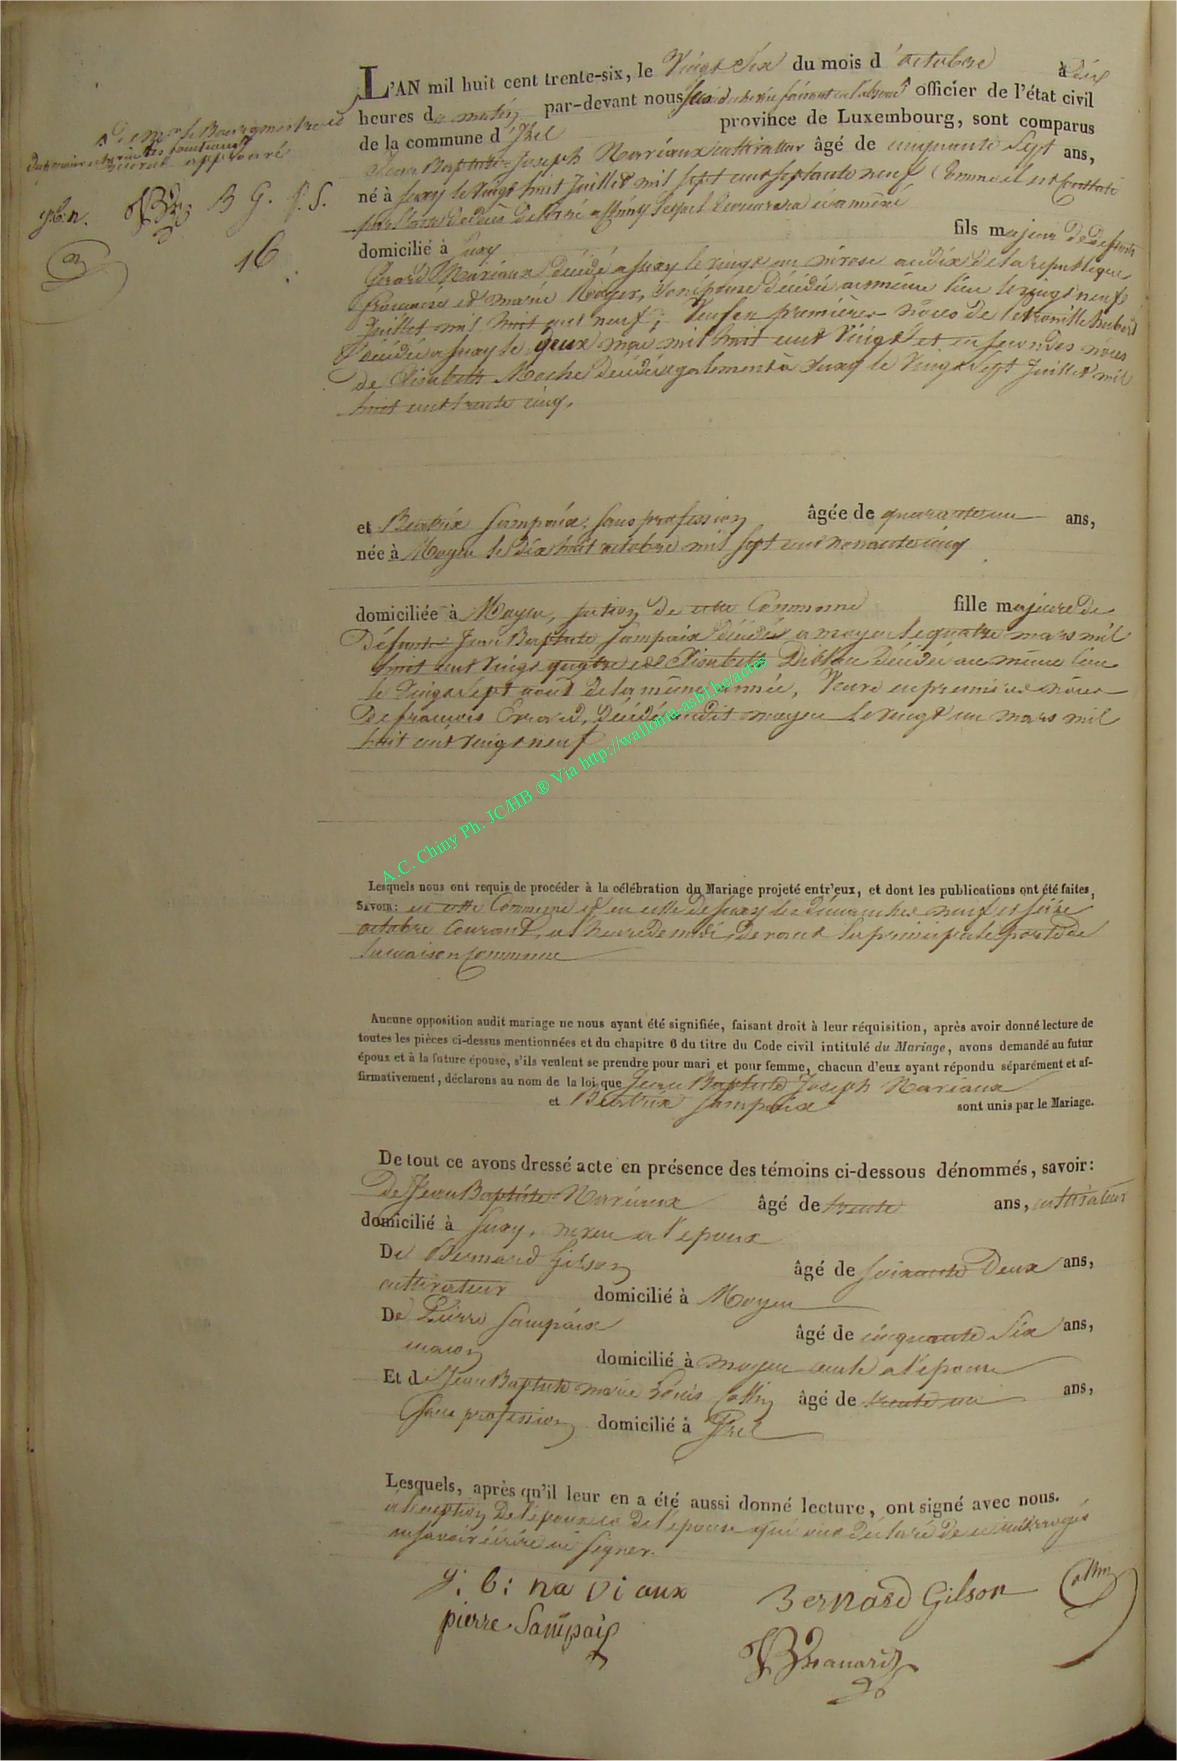 L'AN mil huit cent trente-six, le Vingt Six du mois d'octobre à dix
heures du matin par-devant nous officier de l'état civil
de la commune d'Izel province de Luxembourg, sont comparus
Jean Baptiste Joseph Naviaux cultivateur âgé de cinquante Sept ans,
né à Suxy le Vingt huit Juillet mil sept cent septante neuf Comme il est constaté
domicilié à Suxy fils majeur de defunts
Gérard Naviaux décédé a Suxy le vingt un nivose an dix de la republique
française et marie son épouse décédée au même lieu le vingt neuf
Juillet mil huit cent neuf; Veuf en premières nôces de
décédée a Suxy le deux mai mil huit cent Vingt et en secondes nôces
de Elisabeth Moche décédée egalement à Suxy le Vingt Sept Juillet mil
huit cent trente cinq.
et Béatrix Sampaix, sans profession âgée de quarante un ans,
née à Moyen le dix huit octobre mil sept cent nonante cinq
domiciliée à Moyen, section de cette Commune fille majeure de
Défunts Jean Baptiste Sampaix décédé a moyen le quatre mars mil
huit cent vingt quatre et Elisabeth décédée au même lieu
le Vingt sept août de la même année, Veuve en premières nôces
De françois Evrard, Décédé audit moyen le vingt un mars mil
huit cent vingt neuf
Lesquels nous ont requis de procéder à la célébration du Mariage projeté entr'eux, et dont les publications ont été faites,
SAVOIR: en cette Commune et en celle de Suxy les dimanches neuf et seize
octobre Courant, a l'heure de midi, devant la principale porte de
la maison commune
Aucune opposition audit mariage ne nous ayant été signifiée, faisant droit à leur réquisition, après avoir donné lecture de
toutes les pièces ci-dessus mentionnées et du chapitre 6 du titre du Code civil intitulé du Mariage, avons demandé au futur
époux et à la future épouse, s'ils veulent se prendre pour mari et pour femme, chacun d'eux ayant répondu séparément et af-
firmativement, déclarons au nom de la loi que Jean Baptiste Joseph Naviaux
et Béatrix Sampaix sont unis par le Mariage.
De tout ce avons dressé acte en présence des témoins ci-dessous dénommés, savoir:
De Jean Baptiste Naviaux âgé de trente ans, cultivateur
domicilié à Suxy, neveu a l'epoux
De Bernard Gilson âgé de soixante Deux ans,
cultivateur domicilié à Moyen
De Pierre Sampaix âgé de cinquante Six ans,
maçon domicilié à moyen oncle a l'épouse
Et de Jean Baptiste marie Louis Collin âgé de trente un ans,
sans profession domicilié à Izel
Lesquels, après qu'il leur en a été aussi donné lecture, ont signé avec nous.
à l'exception De l'epoux et de l'épouse qui ont déclaré de ce interrogés
ne savoir écrire ni signer.
J: b: naviaux Bernard Gilson Collin
pierre Sampaix
16
A.C. Chiny Ph. JC/HB ® Via http://wallonia-asbl.be/actes